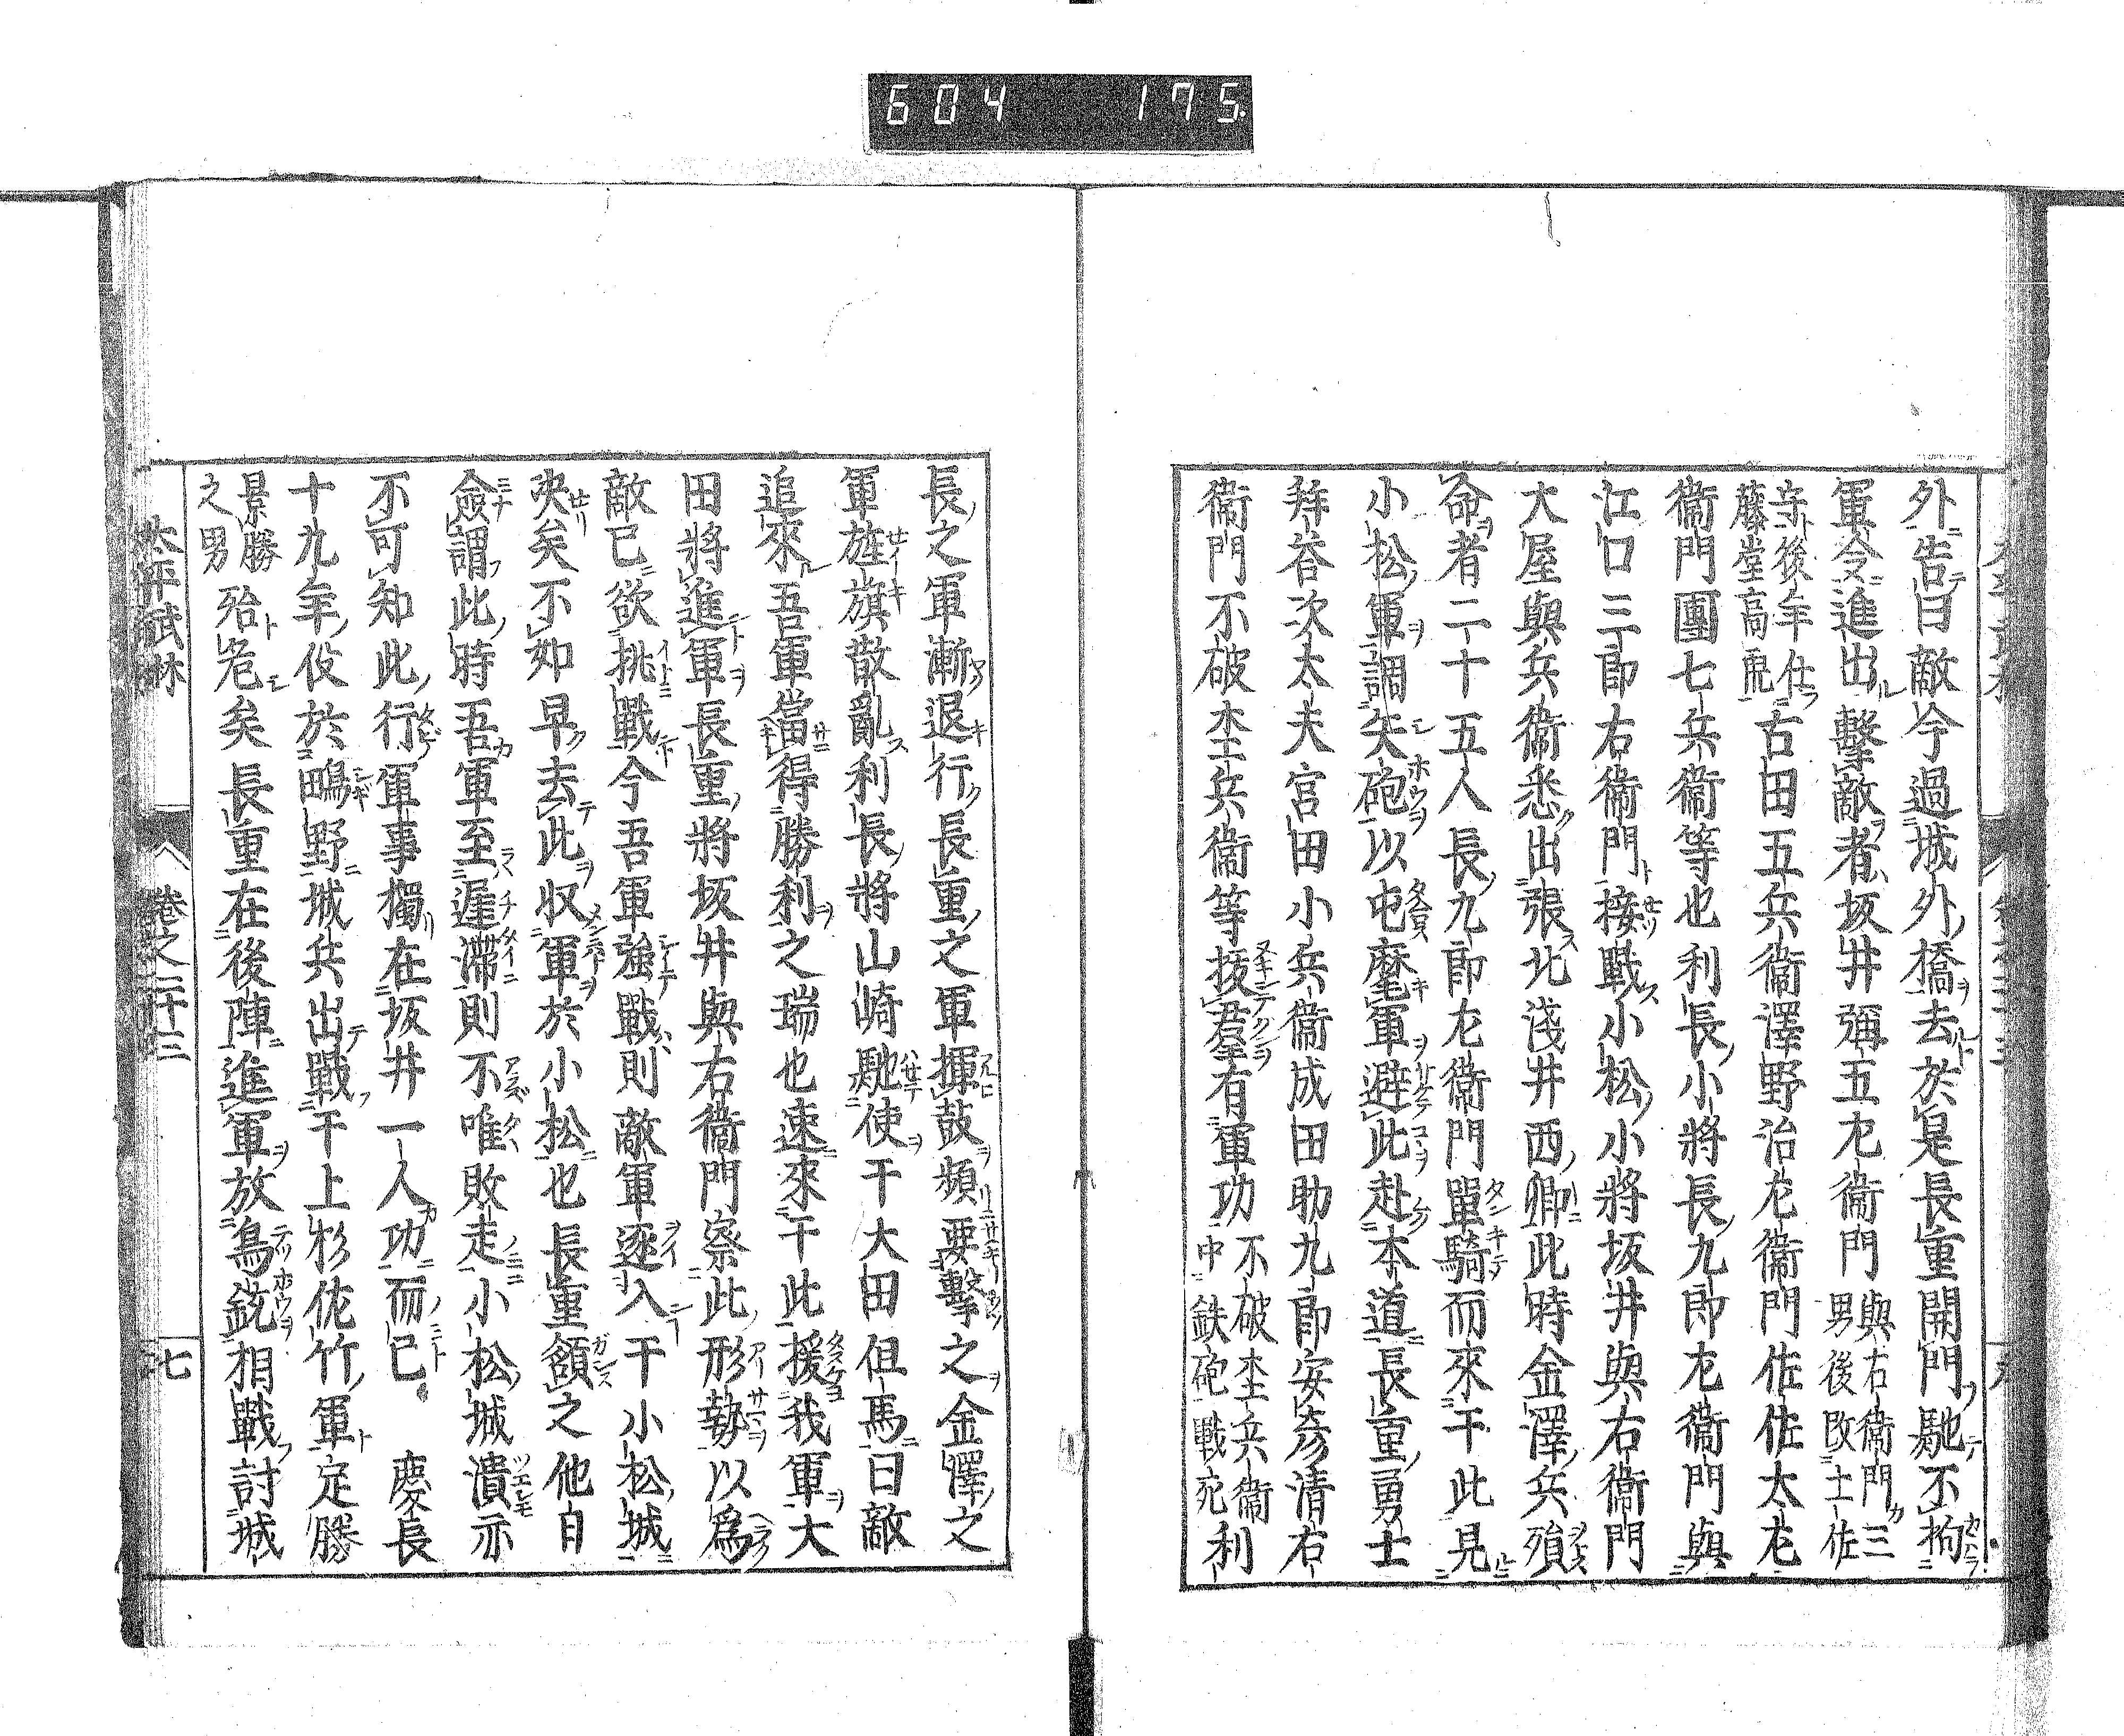 604 175
外告曰敵今過城外橋去於是長重開門馳不拘
軍令進出擊敵者坂井彌五左衞門與右衞門三男後改土佐
守後年仕藤堂高虎古田五兵衞澤野治左衞門佐佐太左
衞門團七兵衞等也利長小將長九郎左衞門與
江口三郎右衞門接戰小松小將坂井與右衞門
大屋與兵衞悉出張北淺井西鄕此時金澤兵殞
命者二十五人長九郎左衞門單騎而來于此見
小松軍調矢砲以屯麾軍避此赴本道長重勇士
拜答次太夫宮田小兵衞成田助九郎安彥清右
衞門不破杢兵衞等拔羣有軍功不破杢兵衞中鉄砲戰死利
長之軍漸退行長重之軍揮鼓頻要擊之金澤之
軍旌旗散亂利長將山崎馳使于大田但馬曰敵
追來吾軍當得勝利之瑞也速來于此援我軍大
田將進軍長重將坂井與右衞門察此形勢以爲
敵已欲挑戰今吾軍強戰則敵軍逐入于小松城
決矣不如早去此収軍於小松也長重頷之他日
僉謂此時吾軍至遲滯則不唯敗走小松城潰亦
不可知此行軍事獨在坂井一人功而已　慶長
十九年役於鴫野城兵出戰于上杉佐竹軍定勝
景勝之男殆危矣長重在後陣進軍放鳥銃相戰討城
太平武林　卷之二十三　七